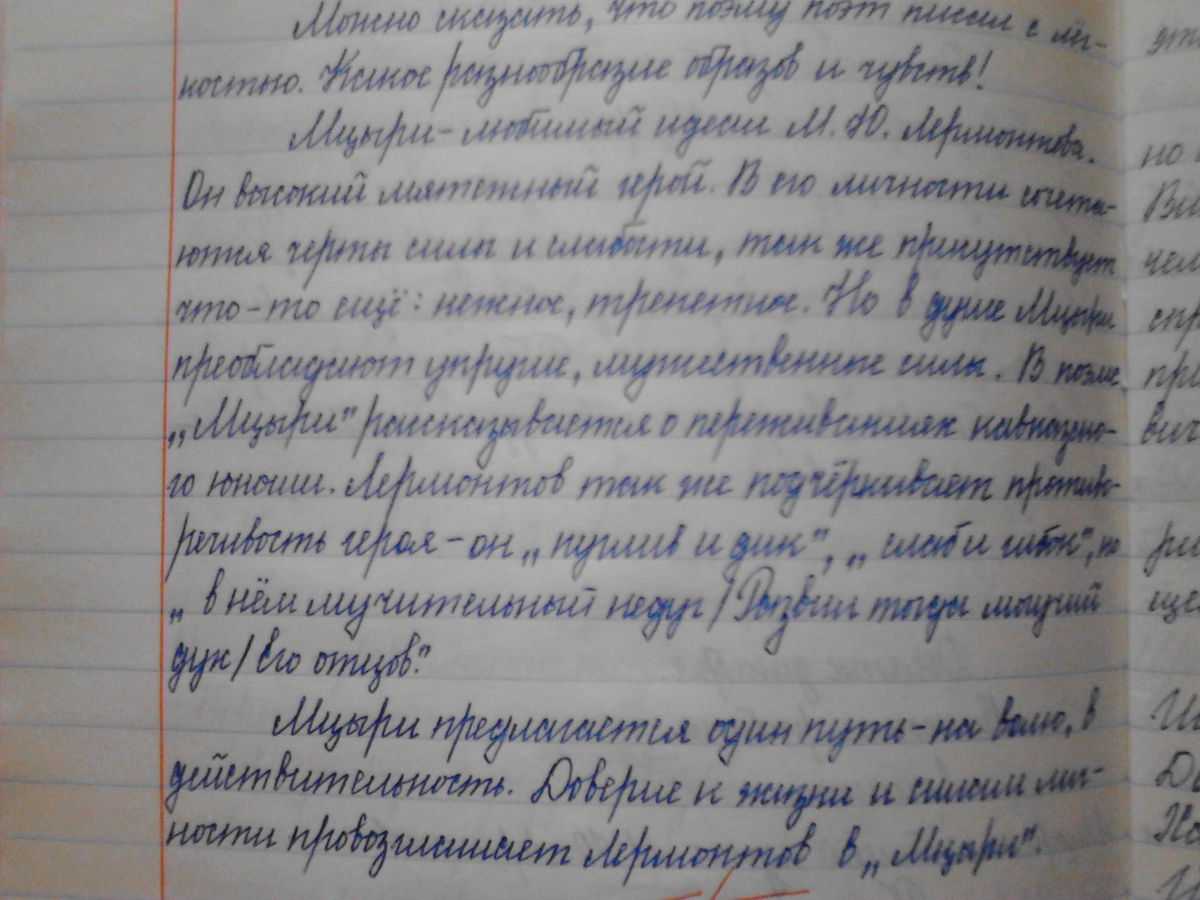 Можно сказать, что поэму поэт писал с лёг-
костью. Какое разнообразие образов и чувств!
Мцыри – любимый идеал М. Ю. Лермонтова.
Он высокий мятежный герой. В его личности сочета-
ются черты силы и слабости, так же присутствует
что-то ещё: нежное, трепетное. Но в душе Мцыри
преобладают упругие, мужественные силы. В поэме
„Мцыри" рассказывается о переживаниях кавказско-
го юноши. Лермонтов так же подчёркивает противо-
речивость героя – он „пуглив и дик", „слаб и гибок", но
„в нём мучительный недуг / Развил тогда могучий
дух / Его отцов."
Мцыри предлагается один путь – на волю, в
действительность. Доверие к жизни и силам лич-
ности провозглашает Лермонтов в „Мцыри".
но
Ви
чем
спр
пре
вич
ще